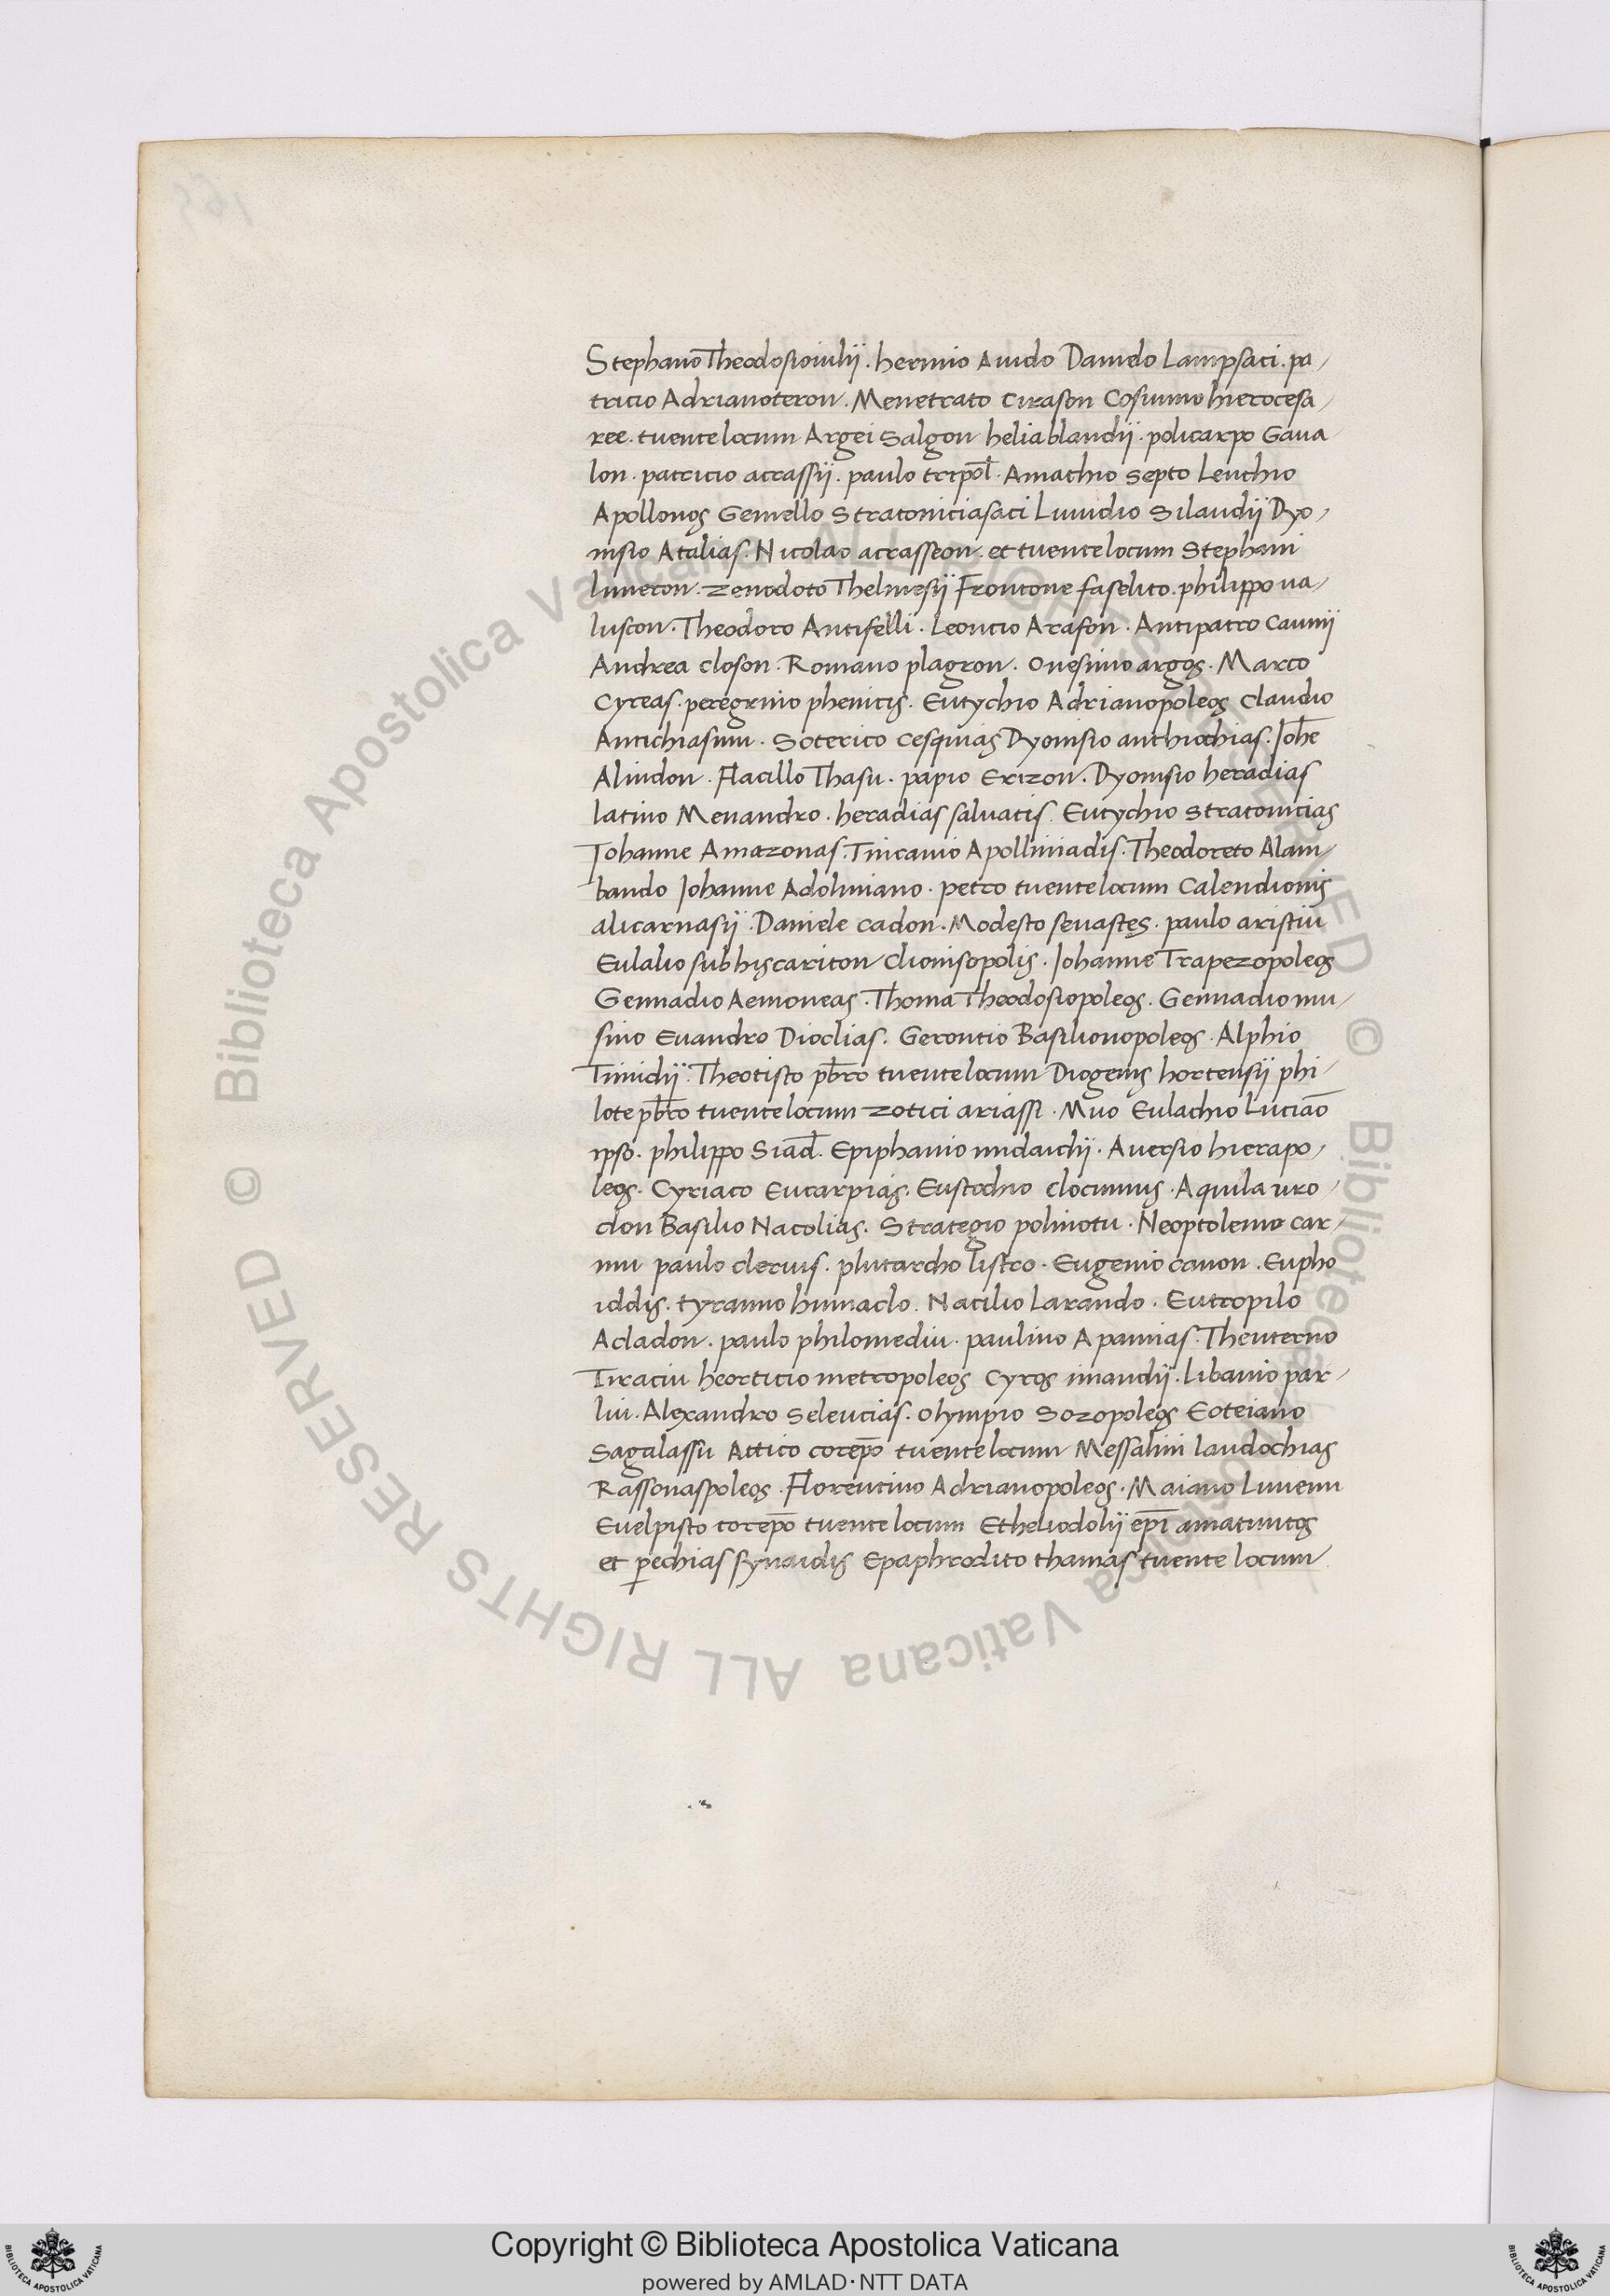 Stephano Theodosioiulii . hermio Auido Dauido Lampsaci . pa/
tricio Adrianoteron . Menetrato Cirason Cosinnio hierocesa/
ree . tuente locum Argei Salgon helia blandii . policarpo Gaua
lon . patricio acrassii . paulo tripol̄ . Amachio septo Leuchio
Apollonos Gemello Stratoniciasaci Luuidio Silandii Dyo/
nisio Atalias . Nicolao acrasseon . et tuente locum Stephani
limeron . zenodoto Thelmesii Frontone faselito . philippo ua/
luscon . Theodoro Antifelli . Leoncio Arason . Antipatro Caunii
Andrea closon . Romano plagron . Onesimo argos . Marco
Cyreas . peregrino phenicis . Eutychio Adrianopoleos Claudio
Antichiasmu . Soterico Cesquias Dyonisio anthiochias . Joh̄e
Alindon . Flacillo Thasu . papio Erizon . Dyonisio heradias
latino Menandro . heradias saluatis . Eutychio Stratonicias
Johanne Amazonas . Tincanio Apolliniadis . Theodoreto Alam/
bando Johanne Adoliniano . petro tuente locum Calendionis
alicarnasii . Daniele cadon . Modesto seuastes . paulo aristiu
Eulalio subhis cariton dionisopolis . Johanne Trapezopoleos
Gennadio Aemoneas . Thoma Theodosiopoleos . Gennadio mu/
sino Euandro Dioclias . Gerontio Basilionopoleos . Alphio
Timidii . Theotisto pb̄ro tuente locum Diogenis hortensii phi/
lote pb̄ro tuente locum zotici ariassi . Muo Eulachio Luciāo
ipso . philippo Siad̄ . Epiphanio midaidii . Auersio hierapo/
leos . Cyriaco Eucarpias . Eustochio docimnis . Aquila uro/
don Basilio Nacolias . Strategio polinotu . Neoptolemo car/
mu paulo deruis . plutarcho listro . Eugenio canon . Eupho
iddis . tyranno humado . Nacilio Larando . Eutropilo
Acladon . paulo philomediu . paulino Apamias . Theuterno
Tiraciu heorticio metropoleos Cyros imandii . Libanio par/
liu . Alexandro Seleucias . Olympio Sozopoleos Eoteiano
Sagalassu Attico corep̄o tuente locum Messalini laudochias
Rassonaspoleos . Florentino Adrianopoleos . Maiano Limenu
Euelpisto corep̄o tuente locum Etheliodolii ep̄i amatuntos
et perechias synaidis Epaphrodito thamas tuente locum
Copyright © Biblioteca Apostolica Vaticana
powered by AMLAD・NTT DATA
© Biblioteca Apostolica Vaticana ALL RIGHTS RESERVED © Biblioteca Apostolica Vaticana ALL RIGHTS RESERVED